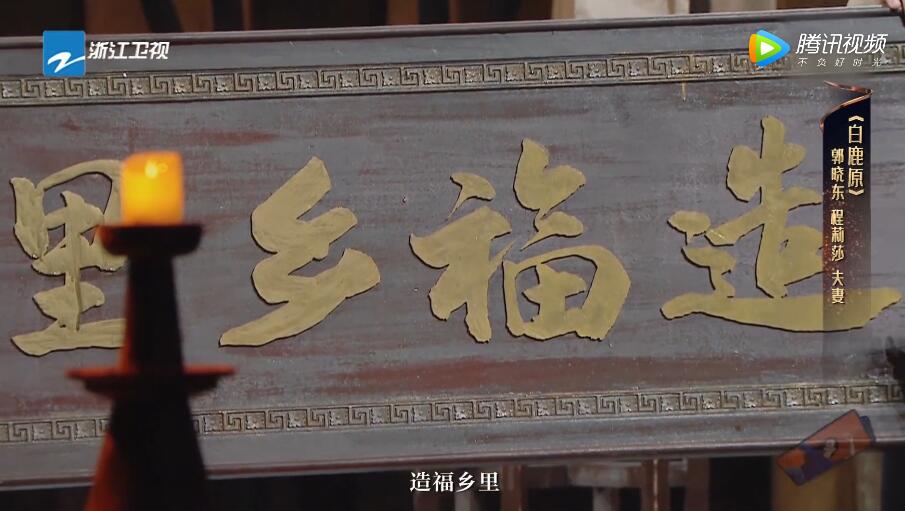 浙江卫视
腾讯视频
不负好时光
《白鹿原》
郭晓东 程莉莎 夫妻
造福乡里
造福乡里